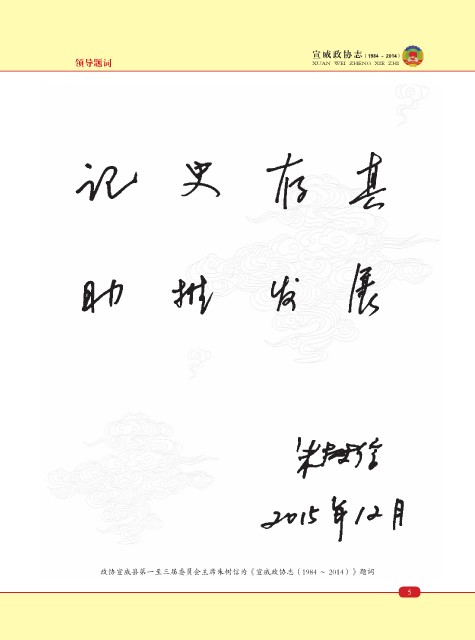 宣威政协志（1984 ~ 2014）
XUAN WEI ZHENG XIE ZHI
领导题词
记史存真
助推发展
朱树信
2015年12月
政协宣威县第一至三届委员会主席朱树信为《宣威政协志（1984 ~ 2014）》题词
5